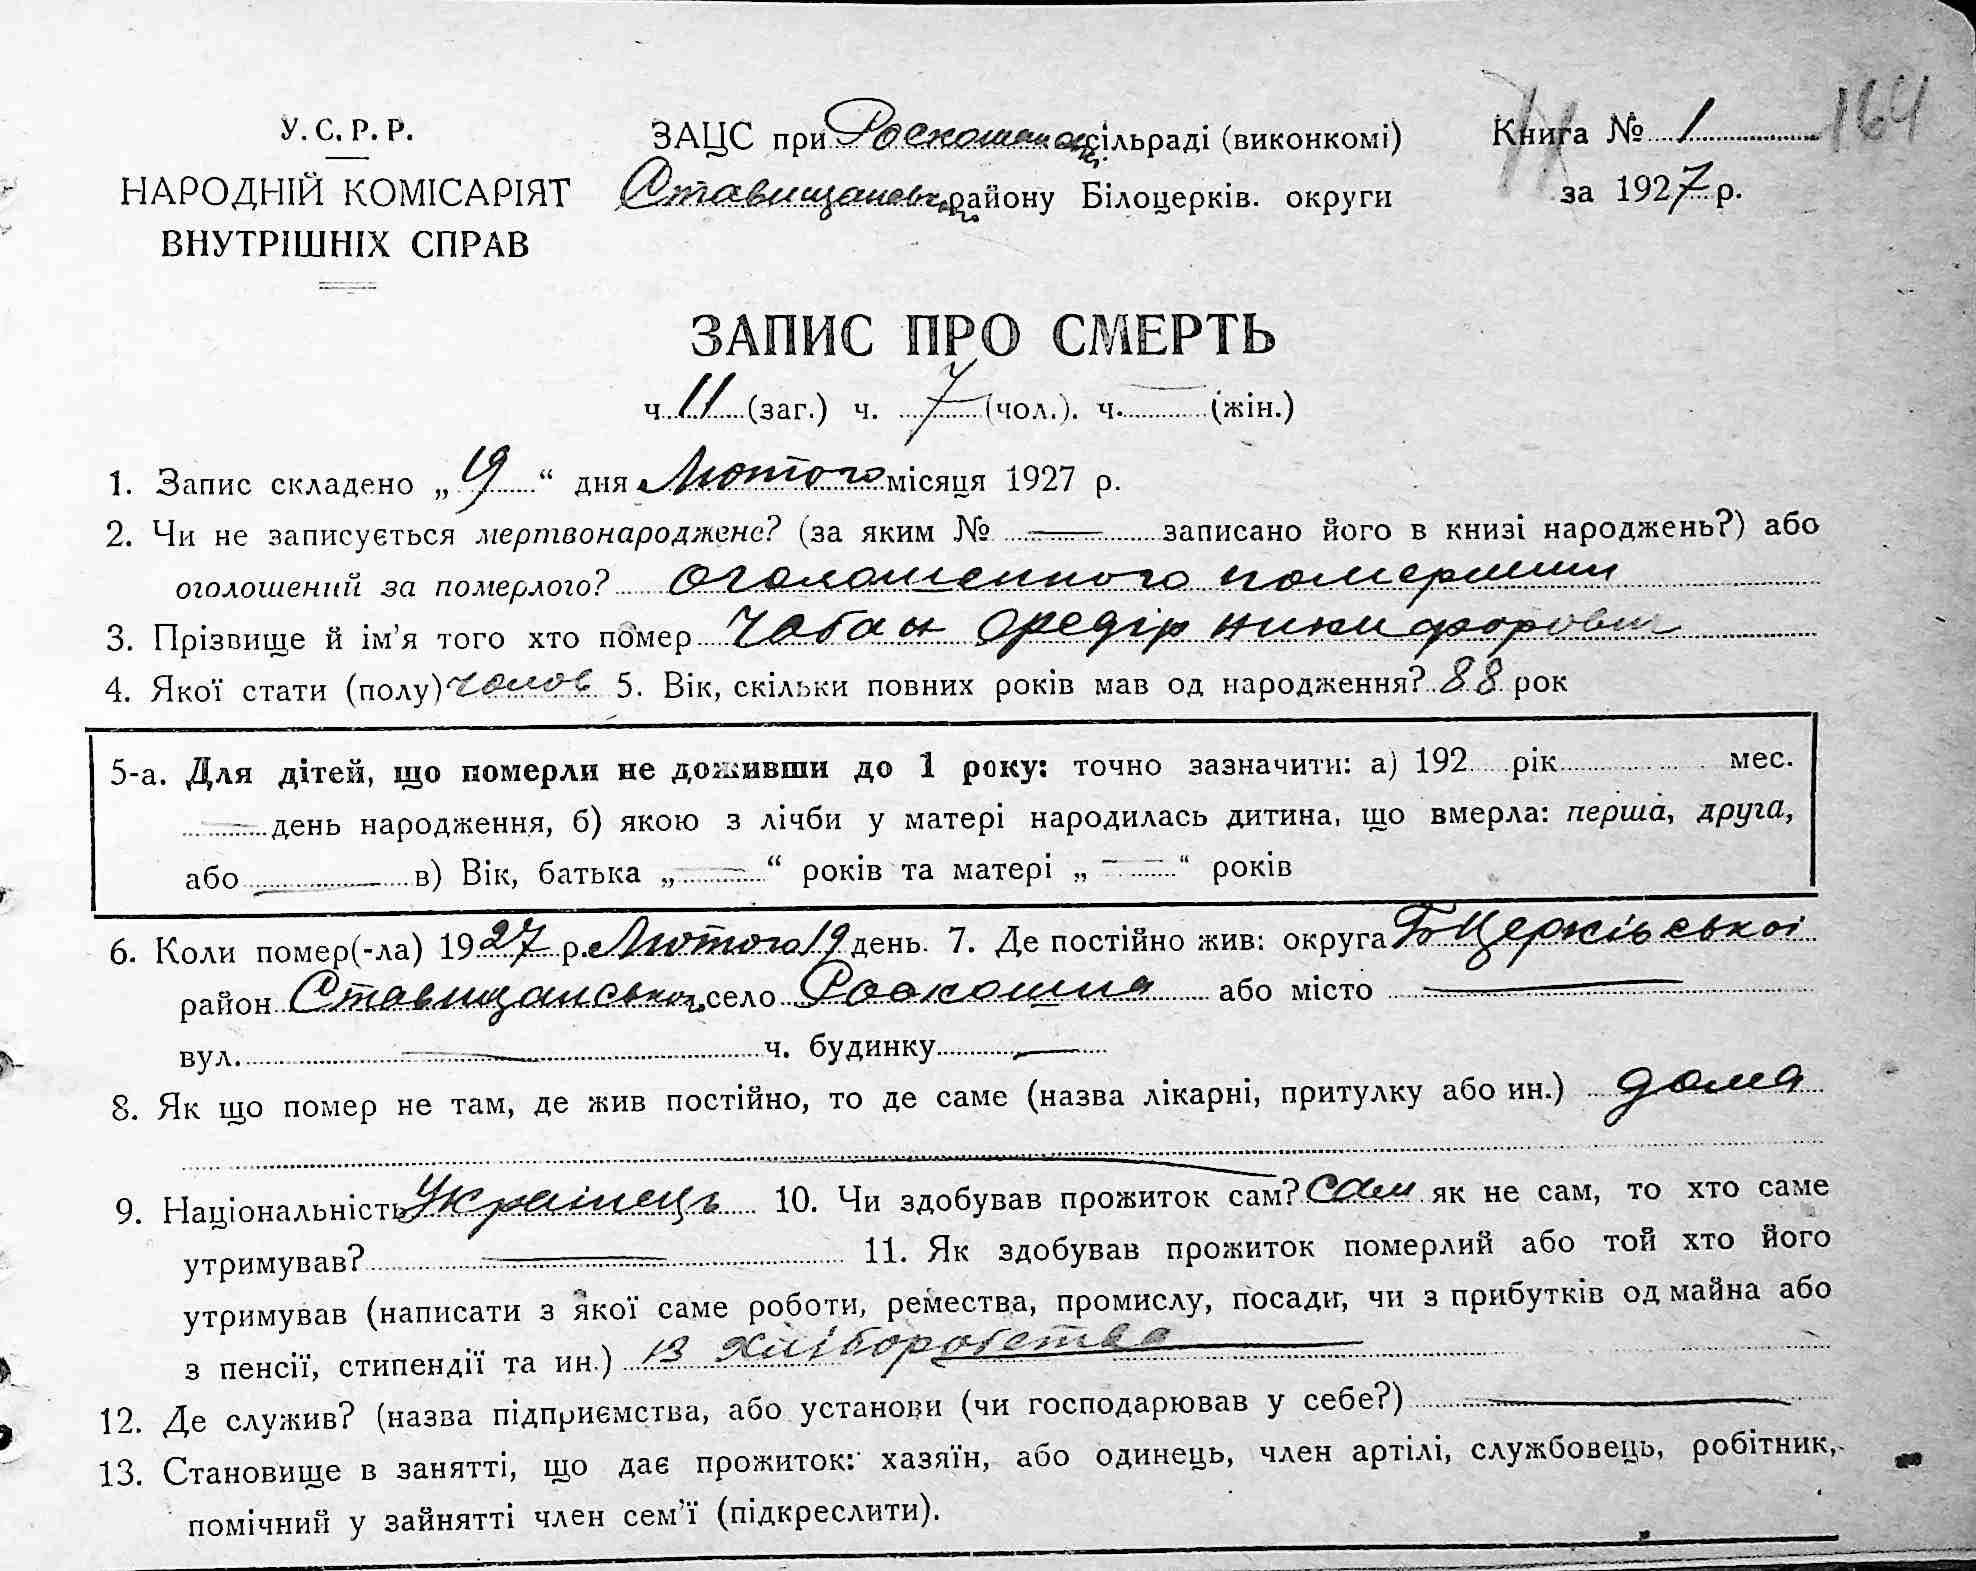 У.С.Р.Р.
НАРОДНІЙ КОМІСАРІЯТ
ВНУТРІШНІХ СПРАВ
ЗАЦС при Роскошанськ. сільраді (виконкомі)
Ставищанськ. району Білоцерків. округи
Книга № 1
164
за 1927 р.
ЗАПИС ПРО СМЕРТЬ
ч. 11 (заг.) ч. 7 (чол.). ч. — (жін.)
1. Запис складено „19“ дня Лютого місяця 1927 р.
2. Чи не записується мертвонароджене? (за яким № — записано його в книзі народжень?) або
оголошений за померлого? оголошенного помершим
3. Прізвище й ім’я того хто помер Чабан Федір Никифорович
4. Якої стати (полу) чолов 5. Вік, скільки повних років мав од народження? 88 рок
5-а. Для дітей, що померли не доживши до 1 року: точно зазначити: а) 192 рік мес.
— день народження, б) якою з лічби у матері народилась дитина, що вмерла: перша, друга,
або — в) Вік, батька „—“ років та матері „—“ років
6. Коли помер(-ла) 1927 р. Лютого 19 день. 7. Де постійно жив: округа Б Церківської
район Ставищанськог село Роскошна або місто —
вул. — ч. будинку —
8. Як що помер не там, де жив постійно, то де саме (назва лікарні, притулку або ин.) дома
9. Національність Українець 10. Чи здобував прожиток сам? сам як не сам, то хто саме
утримував? — 11. Як здобував прожиток померлий або той хто його
утримував (написати з якої саме роботи, ремества, промислу, посади, чи з прибутків од майна або
з пенсії, стипендії та ин.) із хліборобства
12. Де служив? (назва підприємства, або установи (чи господарював у себе?) —
13. Становище в занятті, що дає прожиток: хазяїн, або одинець, член артілі, службовець, робітник,
помічний у зайнятті член сем’ї (підкреслити).